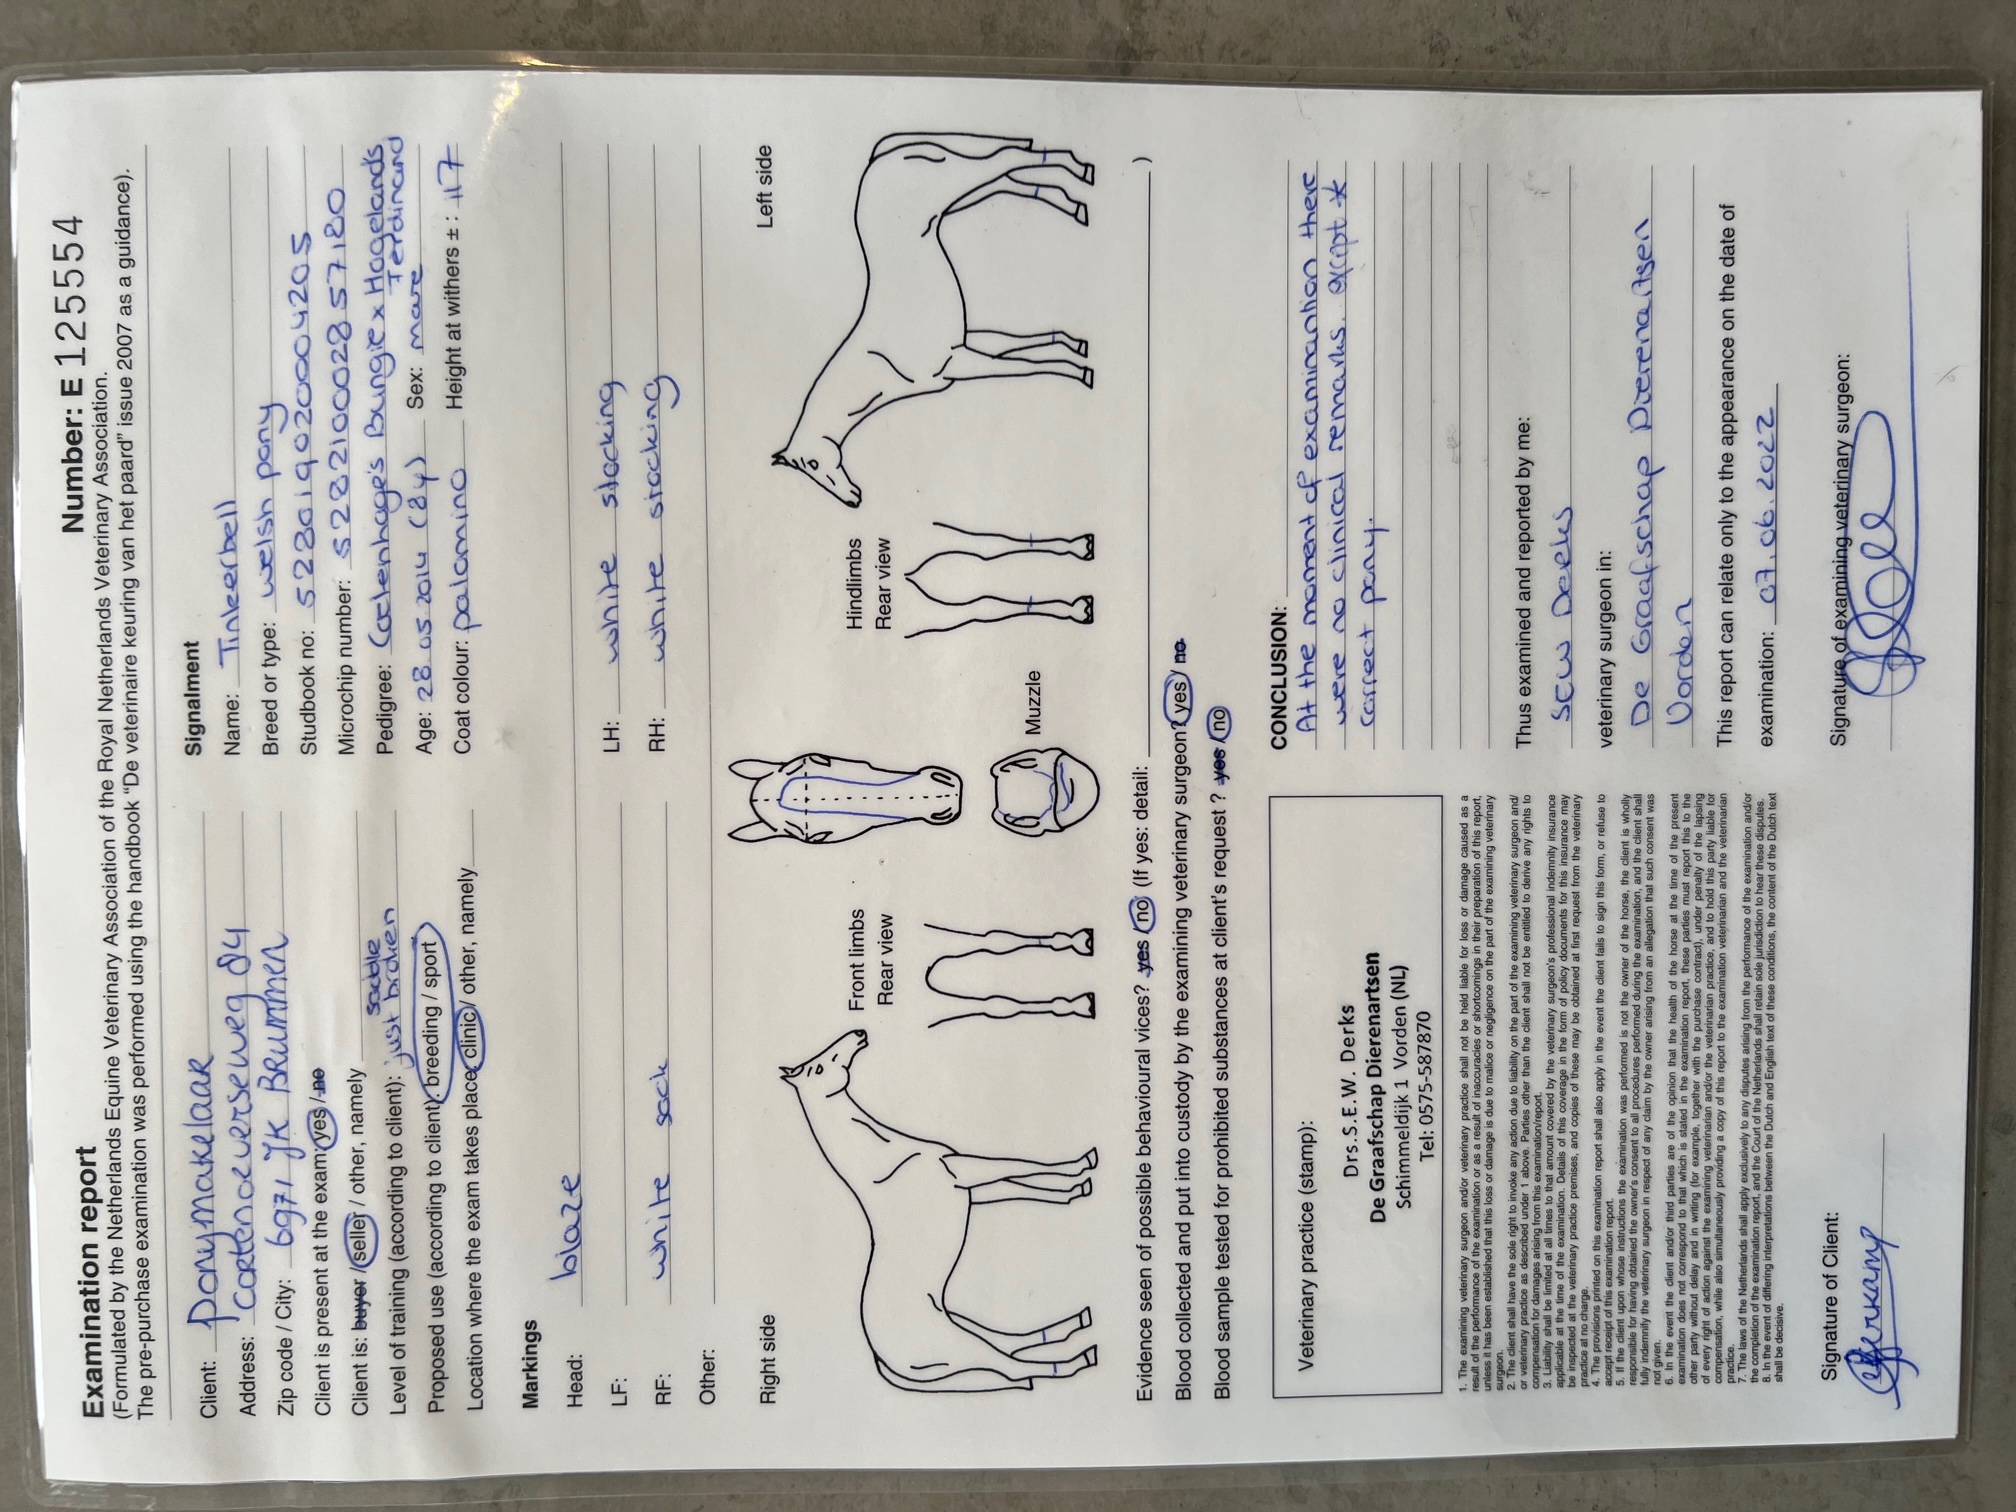 Examination report
Number: E 125554
(Formulated by the Netherlands Equine Veterinary Association of the Royal Netherlands Veterinary Association.
The pre-purchase examination was performed using the handbook “De veterinaire keuring van het paard” issue 2007 as a guidance).
Client: Ponymakelaar
Address: Cortenoeverseweg 84
Zip code / City: 6971 JK Brummen
Client is present at the exam: yes / no
Client is: buyer / seller / other, namely
Level of training (according to client): just saddle broken
Proposed use (according to client): breeding / sport
Location where the exam takes place: clinic / other, namely
Signalment
Name: Tinkerbell
Breed or type: welsh pony
Studbook no: 528019020004205
Microchip number: 528210002857180
Pedigree: Coctenhage's Bungie x Hogeland's Ferdinand
Age: 28.05.2014 (8y) Sex: mare
Coat colour: palomino Height at withers ± : 117
Markings
Head: blaze
LF: LH: white stocking
RF: white sock RH: white stocking
Other:
Right side
Front limbs
Rear view
Muzzle
Hindlimbs
Rear view
Left side
Evidence seen of possible behavioural vices? yes / no (If yes: detail: )
Blood collected and put into custody by the examining veterinary surgeon? yes / no
Blood sample tested for prohibited substances at client's request ? yes / no
Veterinary practice (stamp):
Drs.S.E.W. Derks
De Graafschap Dierenartsen
Schimmeldijk 1 Vorden (NL)
Tel: 0575-587870
1. The examining veterinary surgeon and/or veterinary practice shall not be held liable for loss or damage caused as a
result of the performance of the examination or as a result of inaccuracies or shortcomings in their preparation of this report,
unless it has been established that this loss or damage is due to malice or negligence on the part of the examining veterinary
surgeon.
2. The client shall have the sole right to invoke any action due to liability on the part of the examining veterinary surgeon and/
or veterinary practice as described under 1 above. Parties other than the client shall not be entitled to derive any rights to
compensation for damages arising from this examination/report.
3. Liability shall be limited at all times to that amount covered by the veterinary surgeon's professional indemnity insurance
applicable at the time of the examination. Details of this coverage in the form of policy documents for this insurance may
be inspected at the veterinary practice premises, and copies of these may be obtained at first request from the veterinary
practice at no charge.
4. The provisions printed on this examination report shall also apply in the event the client fails to sign this form, or refuse to
accept receipt of this examination report.
5. If the client upon whose instructions the examination was performed is not the owner of the horse, the client is wholly
responsible for having obtained the owner's consent to all procedures performed during the examination, and the client shall
fully indemnify the veterinary surgeon in respect of any claim by the owner arising from an allegation that such consent was
not given.
6. In the event the client and/or third parties are of the opinion that the health of the horse at the time of the present
examination does not correspond to that which is stated in the examination report, these parties must report this to the
other party without delay and in writing (for example, together with the purchase contract), under penalty of the lapsing
of every right of action against the examining veterinarian and/or the veterinarian practice, and to hold this party liable for
compensation, while also simultaneously providing a copy of this report to the examination veterinarian and the veterinarian
practice.
7. The laws of the Netherlands shall apply exclusively to any disputes arising from the performance of the examination and/or
the completion of the examination report, and the Court of the Netherlands shall retain sole jurisdiction to hear these disputes.
8. In the event of differing interpretations between the Dutch and English text of these conditions, the content of the Dutch text
shall be decisive.
Signature of Client:
CONCLUSION:
At the moment of examinantion there
were no clinical remarks. except *
Correct pony.
Thus examined and reported by me:
SEW Derks
veterinary surgeon in:
De Graafschap Dierenartsen
Vorden
This report can relate only to the appearance on the date of
examination: 07.06.2022
Signature of examining veterinary surgeon: